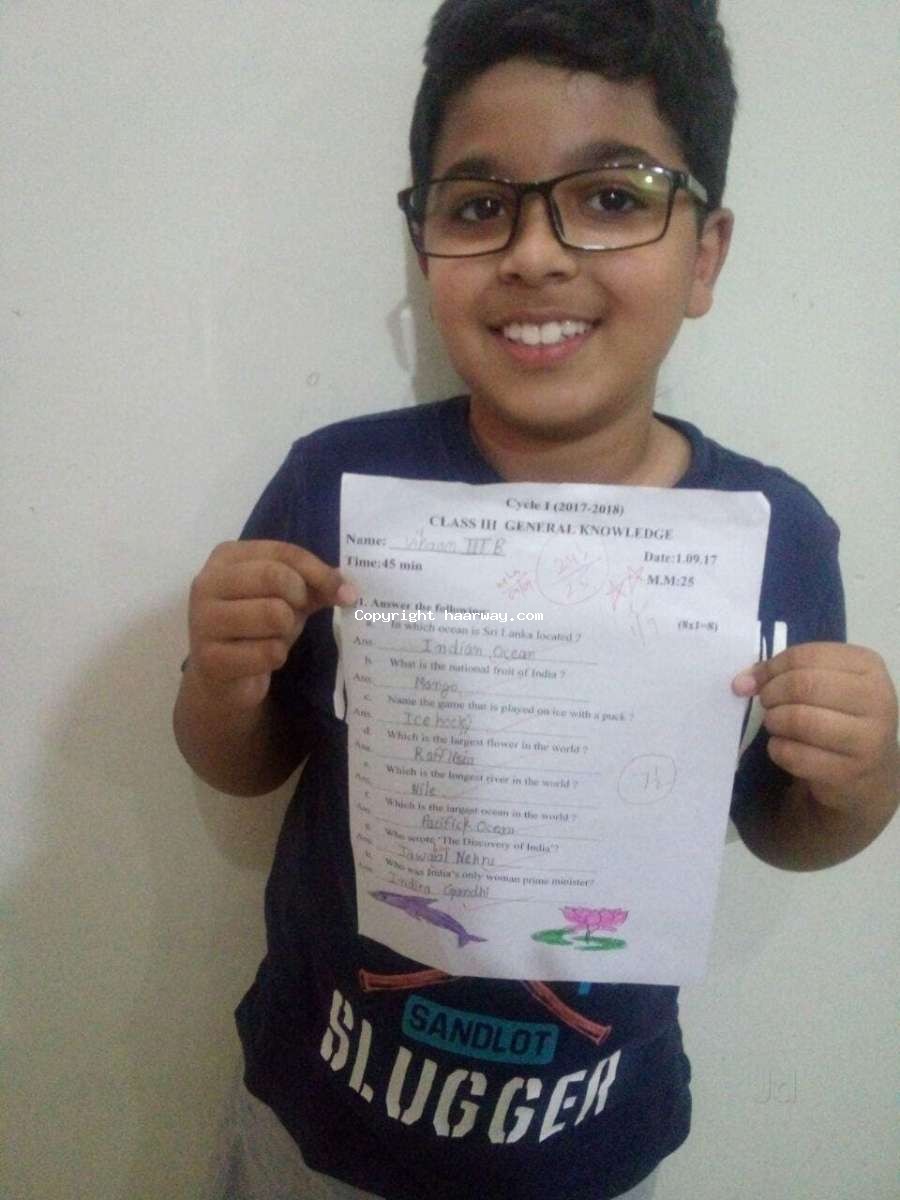 Cycle I (2017-2018)
CLASS III GENERAL KNOWLEDGE
Name: Vihaan III B
Date:1.09.17
Time:45 min
M.M:25
24½
25
1. Answer the following
(8x1=8)
Copyright haarway.com
a. In which ocean is Sri Lanka located ?
Ans. Indian Ocean
b. What is the national fruit of India ?
Ans. Mango
c. Name the game that is played on ice with a puck ?
Ans. Ice hocky
d. Which is the largest flower in the world ?
Ans.
e. Which is the longest river in the world ?
Ans. Nile
7½
f. Which is the largest ocean in the world ?
Ans. Pacifick Ocean
g. Who wrote 'The Discovery of India'?
Ans. Nehru
h. Who was India's only woman prime minister?
Ans. Indira Gandhi
SANDLOT
SLUGGER
Jd